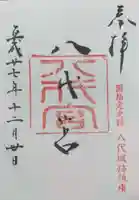 奉拝
八代宮
八代宮
八代城跡鎮座
平成廿七年十二月廿日